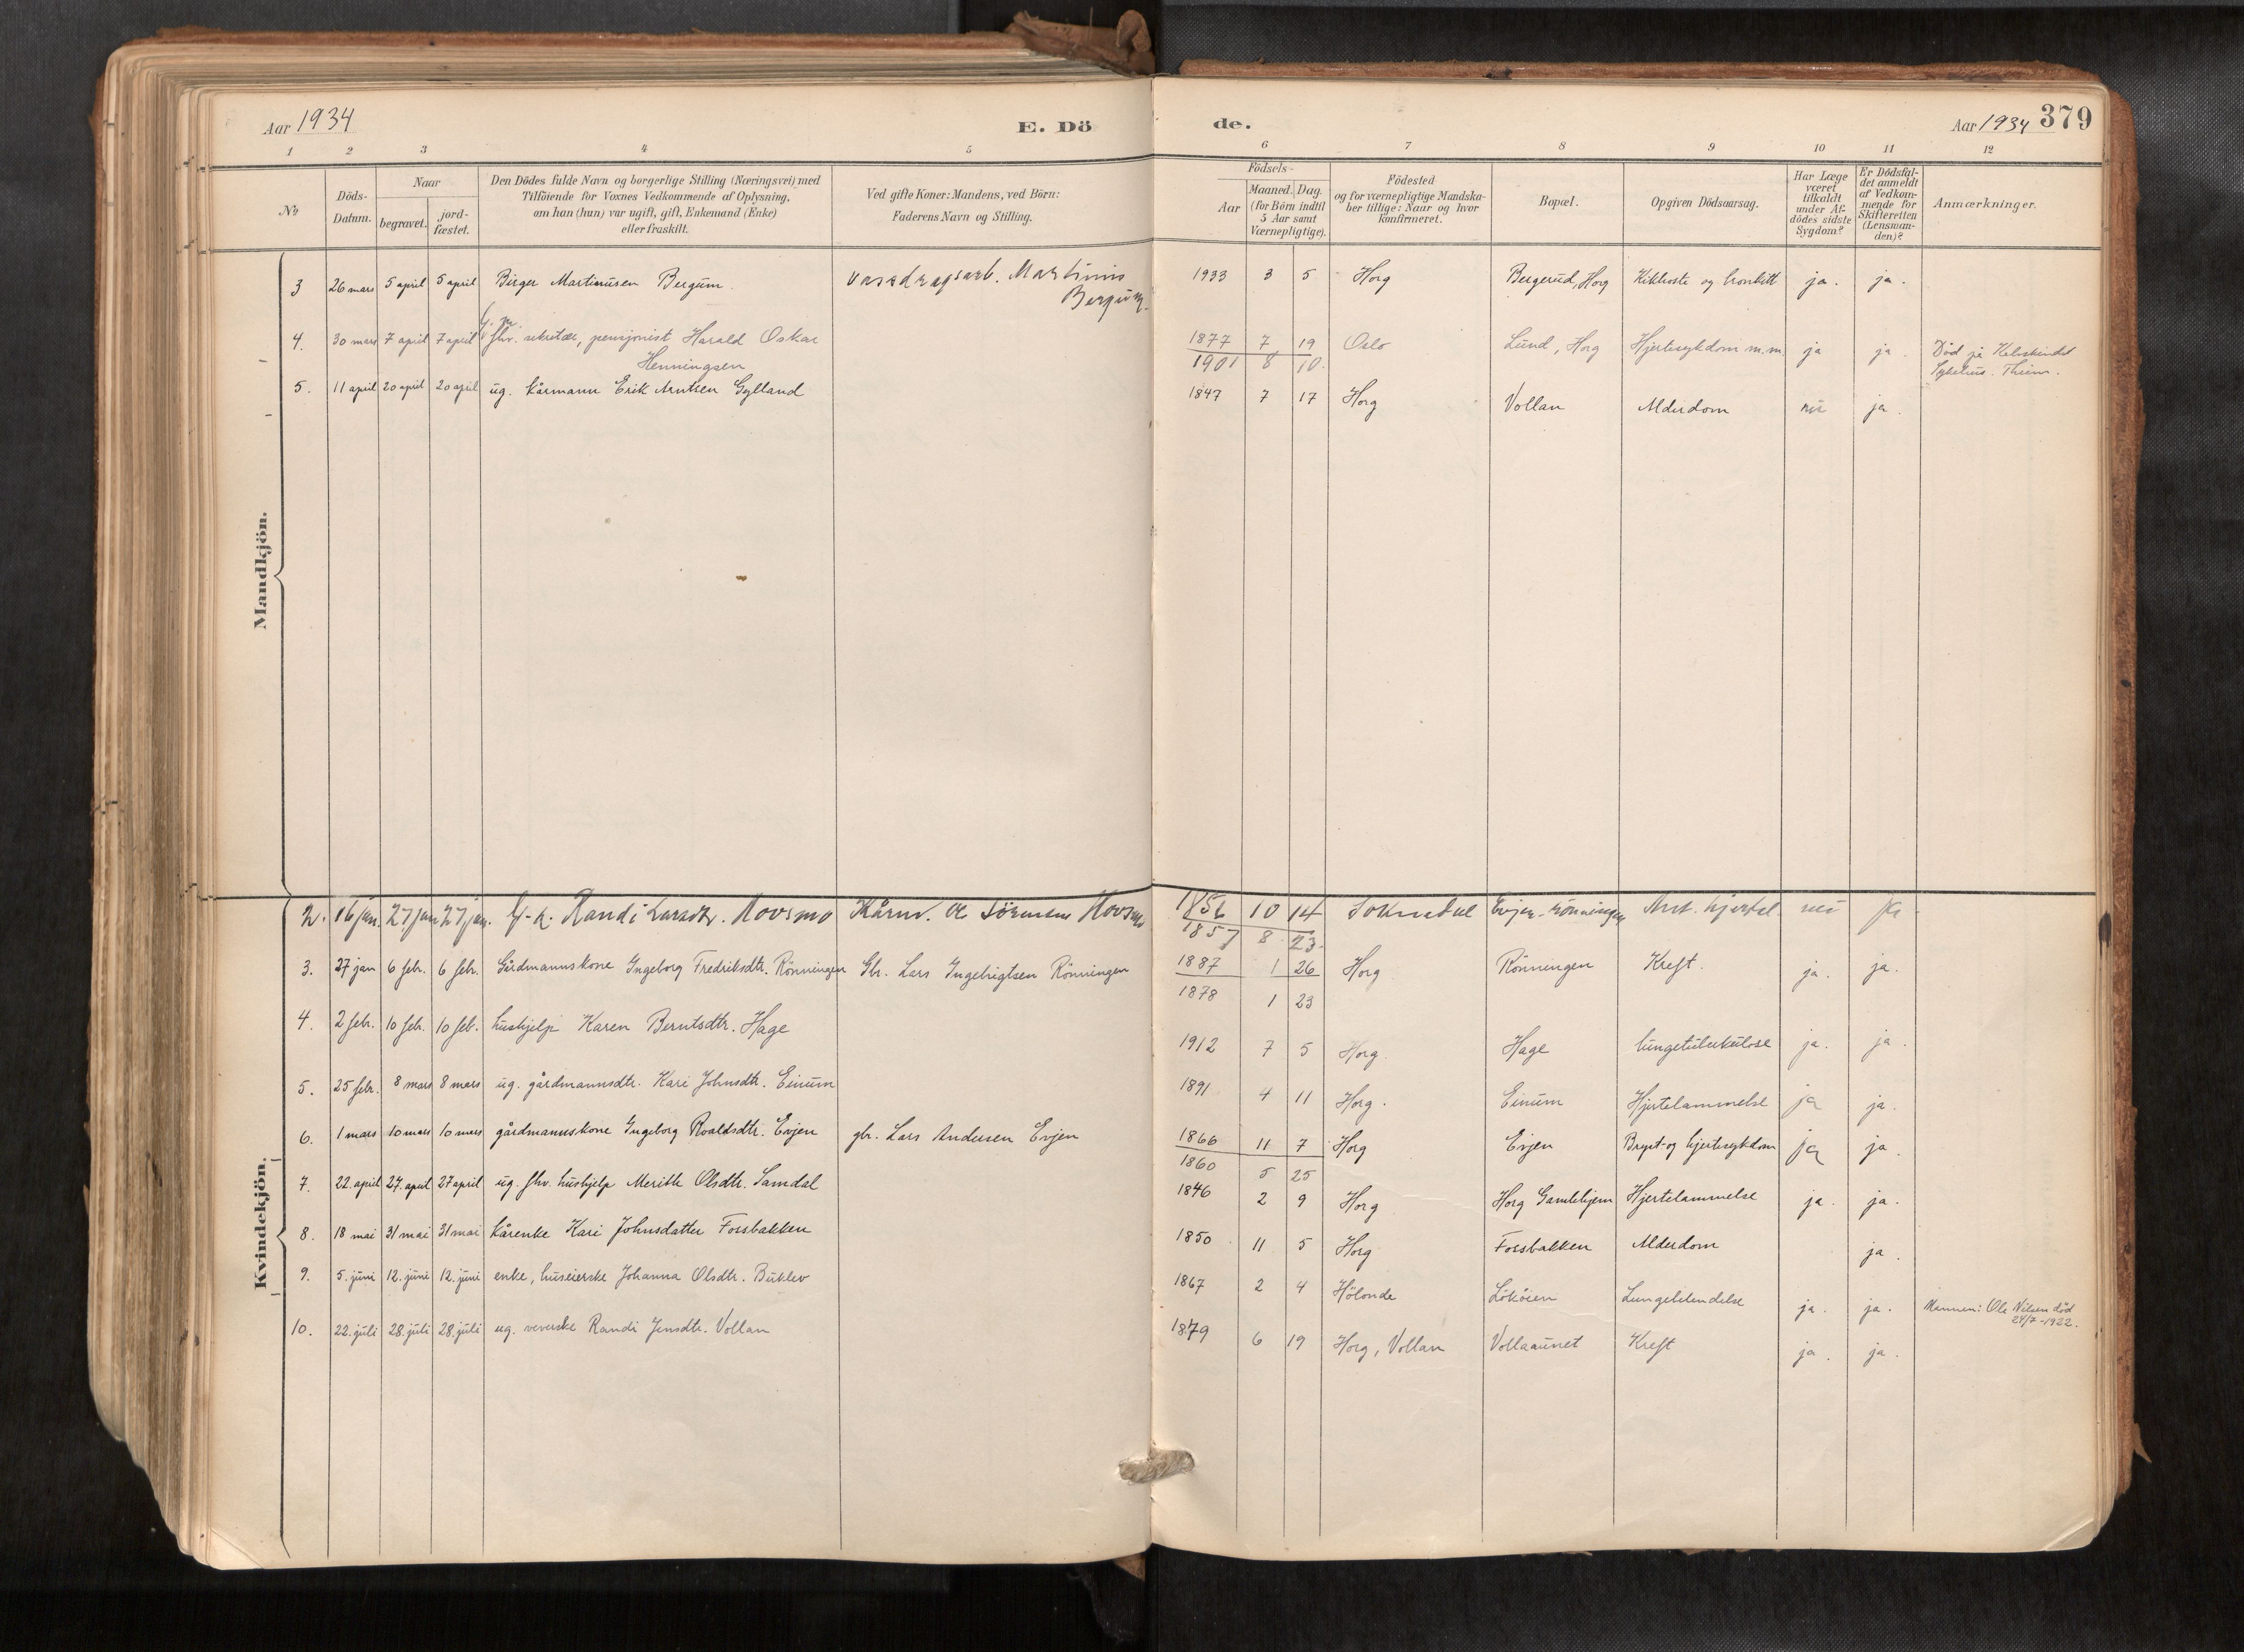 Aar 1934 E. Dö de. Aar 1934 379
1 2 3 4 5 6 7 8 9 10 11 12
№
Döds-
Datum.
Naar
begravet.
jord-
fæstet.
Den Dödes fulde Navn og borgerlige Stilling (Næringsvei) med
Tilföiende for Voxnes Vedkommende af Oplysning,
om han (hun) var ugift, gift, Enkemand (Enke)
eller fraskilt.
Ved gifte Koner: Mandens, ved Börn:
Faderens Navn og Stilling.
Födsels-
Aar
Maaned. Dag.
(for Börn indtil
5 Aar samt
Værnepligtige).
Födested
og for værnepligtige Mandska-
ber tillige: Naar og hvor
konfirmeret.
Bopæl.
Opgiven Dödsaarsag.
Har Læge
været
tilkaldt
under Af-
dödes sidste
Sygdom?
Er Dödsfal-
det anmeldt
af Vedkom-
mende for
Skifteretten
(Lensman-
den)?
Anmærkninger.
Mandkjön.
3 26 mars 5 april 5 april Birger Martinusen Bergum. Martinus 1933 3 5 Horg Bergerud, Horg Kikhoste og bronkitt ja. ja.
Bergum.
g. m.
4. 30 mars 7 april 7 april fhv. sekretær, pensjonist Harald Oskar 1877 7 19 Oslo Lund, Horg Hjertesykdom m.m. ja ja Död på
Henningsen 1901 8 10. Sykehus. Thjem.
5. 11 april 20 april 20 april ug. kårmann Erik Arntsen Gylland 1847 7 17 Horg Vollan Alderdom nei ja.
Kvindekjön.
2. 16 jan. 27. jan 27 jan. Randi Larsdtr. Hovsmo Kårm. Ole Sörensen Hovsmo 1856 10 14 Soknedal Evjen-rönningen hjertel. nei ja
1857 8 23.
3. 27 jan 6 febr. 6 febr. Gårdmannskone Ingeborg Fredriksdtr. Rönningen Gbr. Lars Ingebrigtsen Rönningen 1887 1 26 Horg Rönningen Kreft. ja. ja.
1878 1 23
4. 2 febr. 10 febr. 10 feb. hushjelp Karen Berntsdtr. Hage 1912 7 5 Horg. Hage lungetuberkulose ja. ja.
5. 25 febr. 8 mars 8 mars ug. gårdmannsdtr. Kari Johnsdtr. Einum 1891 4 11 Horg. Einum Hjertelammelse ja ja.
6. 1 mars 10 mars 10 mars gårdmannskone Ingeborg Roaldsdtr. Evjen gbr. Lars Andersen Evjen 1866 11 7 Horg Evjen Bryst-og hjertesykdom ja ja.
1860 5 25
7. 22. april 27. april 27 april ug. fhv. hushjelp Merith Olsdtr. Samdal 1846 2 9 Horg Horg Gamlehjem Hjertelammelse ja. ja.
8. 18 mai 31 mai 31 mai kårenke Kari Johnsdatter Fossbakken 1850 11 5 Horg Fossbakken Alderdom ja.
9. 5. juni 12. juni 12. juni enke, huseierske Johanna Olsdtr. Buklev 1867 2 4 Hölonda Lököien Lungebetendelse ja. ja. Mannen: Ole Nilsen död
24/7-1922.
10. 22. juli 28. juli 28. juli ug. veverske Randi Jensdtr. Vollan 1879 6 19 Horg, Vollan Vollaaunet Kreft ja. ja.